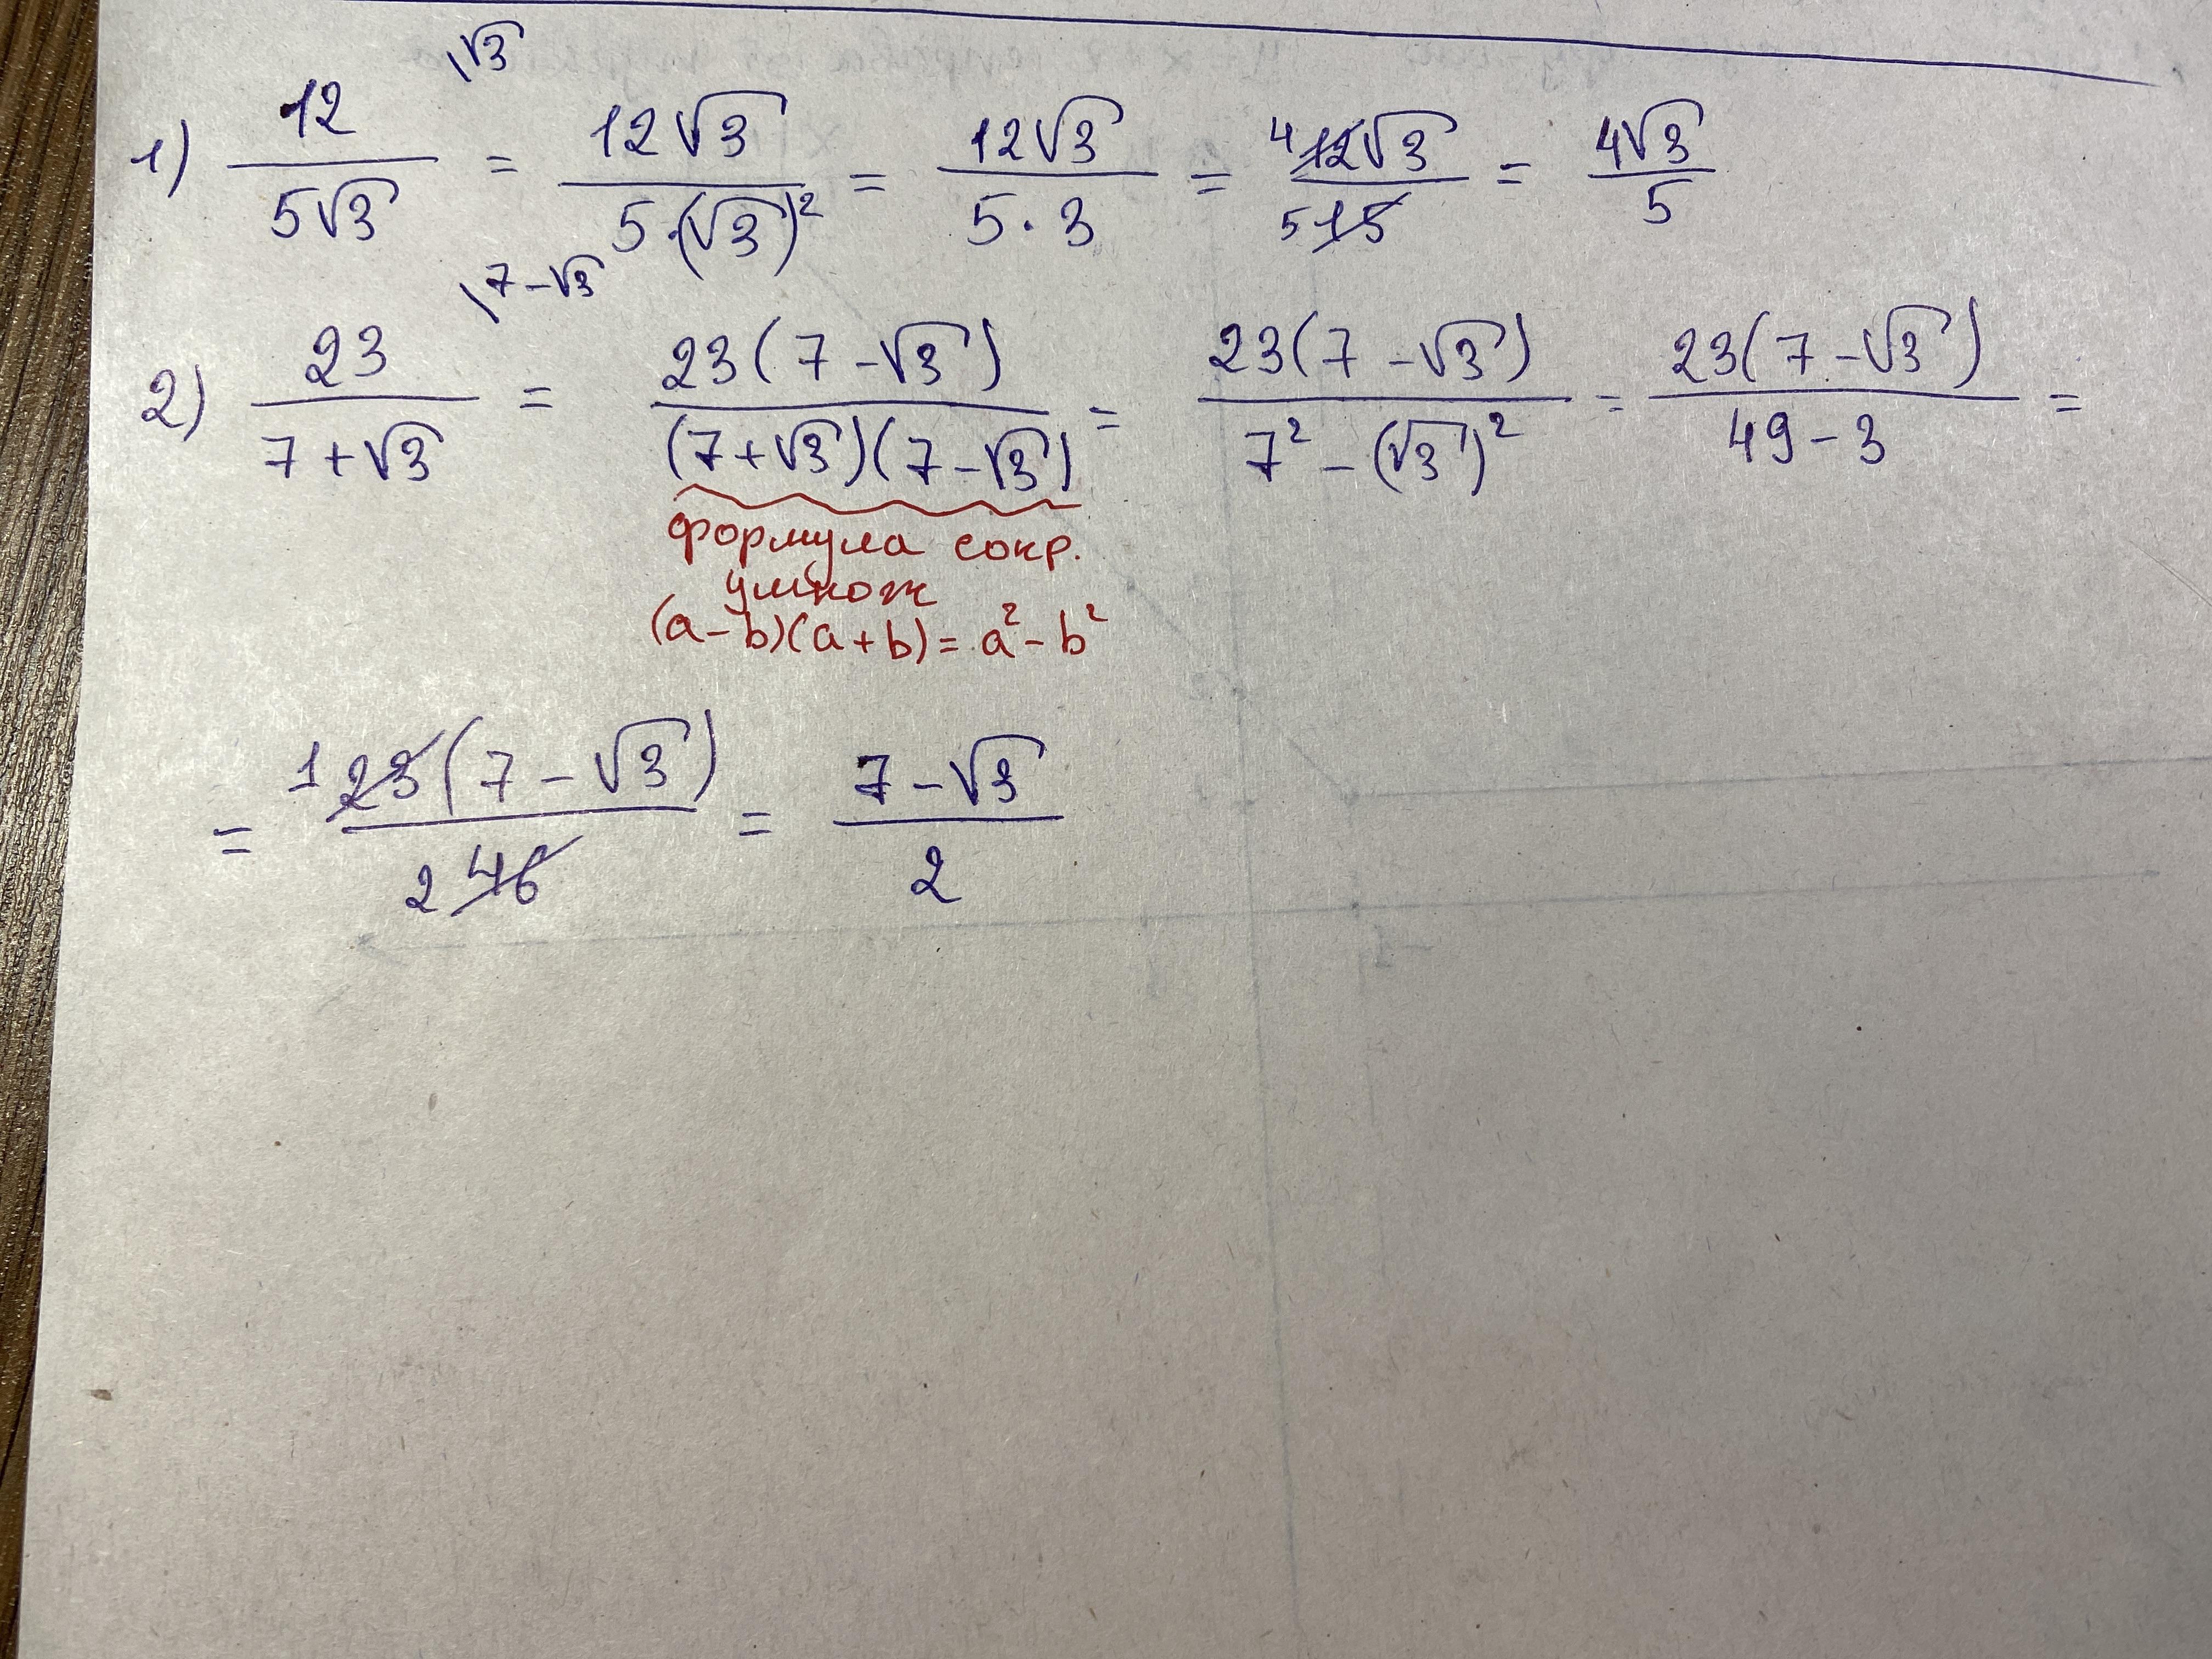 \√3
1) 12/(5√3) = 12√3/(5·(√3)²) = 12√3/(5·3) = ⁴12√3/₅15 = 4√3/5
\7-√3
2) 23/(7+√3) = 23(7-√3)/((7+√3)(7-√3)) = 23(7-√3)/(7²-(√3)²) = 23(7-√3)/(49-3) =
формула сокр.
умнож
(a-b)(a+b)=a²-b²
= ¹23(7-√3)/₂46 = (7-√3)/2